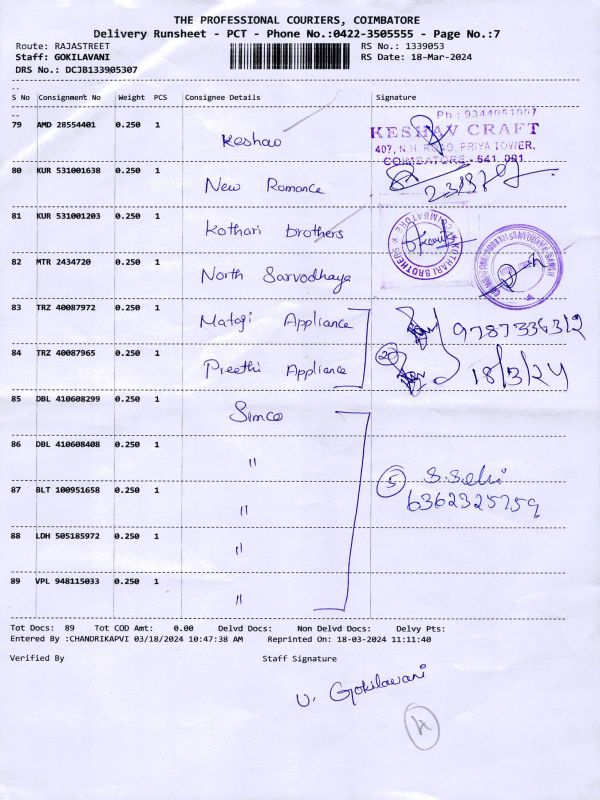 THE PROFESSIONAL COURIERS, COIMBATORE
Delivery Runsheet - PCT - Phone No.:0422-3505555 - Page No.:7
Route: RAJASTREET RS No.: 1339053
Staff: GOKILAVANI RS Date: 18-Mar-2024
DRS No.: DCJB133905307
S No Consignment No Weight PCS Consignee Details Signature
79 AMD 28554401 0.250 1 Keshav
Ph : 9344051097
KESHAV CRAFT
407, N.H. ROAD, PRIYA TOWER,
COIMBATORE - 641 001
80 KUR 531001638 0.250 1 New Romance
81 KUR 531001203 0.250 1 Kothari brothers
KOTHARI BROTHERS COIMBATORE
82 MTR 2434720 0.250 1 North Sarvodhaya
83 TRZ 40087972 0.250 1 Mataji Appliance 9787336312
84 TRZ 40087965 0.250 1 Preethi Appliance 2 18/3/24
85 DBL 410608299 0.250 1 Simco
86 DBL 410608408 0.250 1 "
87 BLT 100951658 0.250 1 " 5 S.Selvi
6362325759
88 LDH 505185972 0.250 1 "
89 VPL 948115033 0.250 1 "
Tot Docs: 89 Tot COD Amt: 0.00 Delvd Docs: Non Delvd Docs: Delvy Pts:
Entered By :CHANDRIKAPVI 03/18/2024 10:47:38 AM Reprinted On: 18-03-2024 11:11:40
Verified By Staff Signature
U. Gokilavani
4